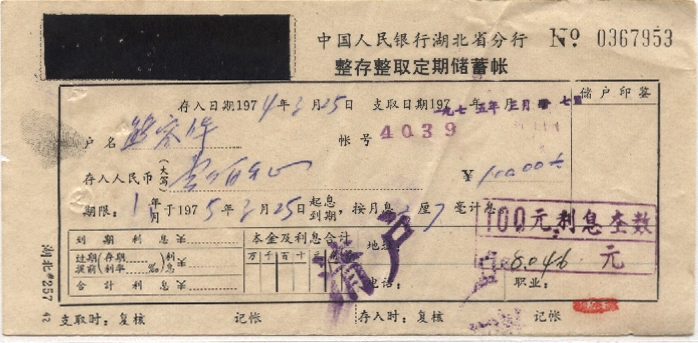 中国人民银行湖北省分行 No 0367953
整存整取定期储蓄帐
存入日期1974年3月25日 支取日期197 年 月 日 储户印鉴
一九七五年三月廿七日
户名 帐号 4039
存入人民币(大写) 壹佰元 ¥100.00
期限:1年 月于1975年3月25日起息到期,按月息 厘7毫计息。
100元利息查数
到期利息¥ 本金及利息合计 地址:
过期提前(存期 利率 ‰)利息¥ 万千百十元角分 8.046 元
清户
合计利息¥ 电话: 职业:
支取时:复核 记帐 存入时:复核 记帐
湖北#257
42